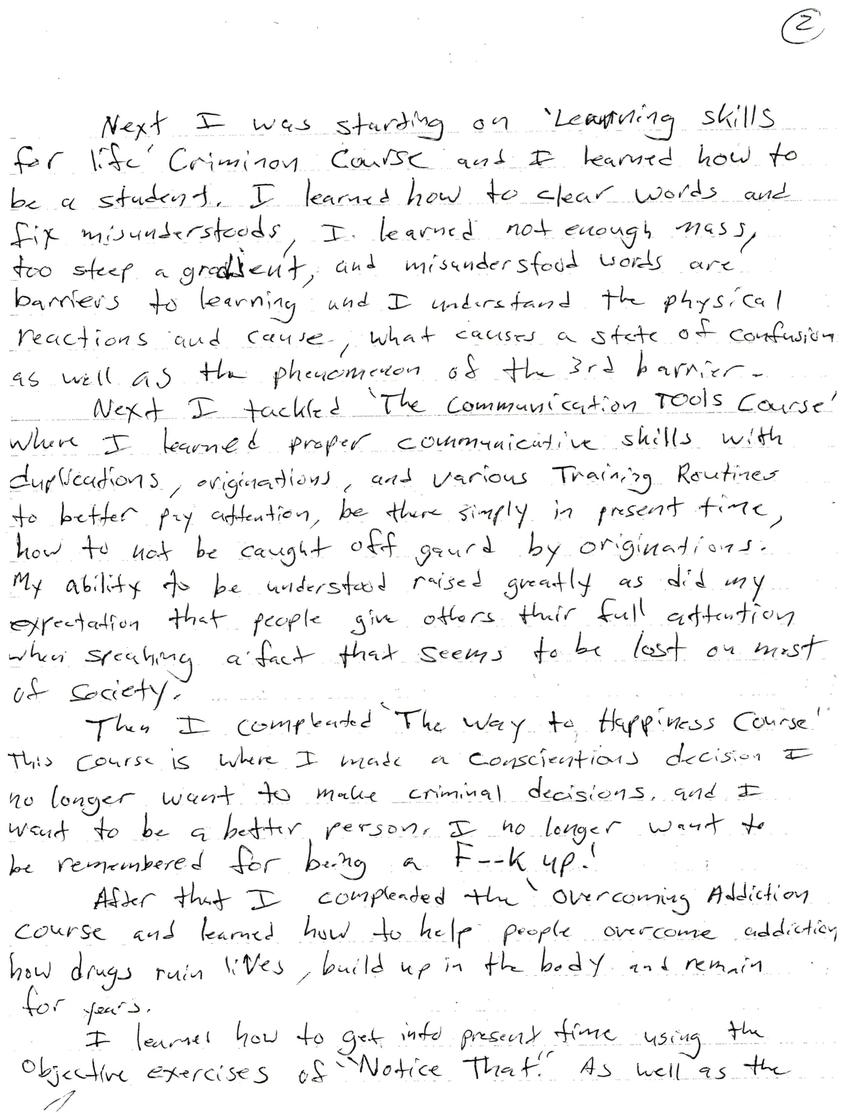 2
Next I was starting on 'Learning skills
for life' Criminon Course and I learned how to
be a student. I learned how to clear words and
fix misunderstoods, I. learned not enough mass,
too steep a gradient, and misunderstood words are
barriers to learning and I understand the physical
reactions and cause, what causes a state of confusion
as well as the phenomenon of the 3rd barrier.
Next I tackled 'The Communication Tools Course'
where I learned proper communicative skills with
duplications, originations, and various Training Routines
to better pay attention, be there simply in present time,
how to not be caught off gaurd by originations.
My ability to be understood raised greatly as did my
expectation that people give others their full attention
when speaking a fact that seems to be lost on most
of society.
Then I compleated 'The Way to Happiness Course'
This Course is where I made a conscientious decision I
no longer want to make criminal decisions, and I
want to be a better person. I no longer want to
be remembered for being a F--k up!
After that I compleated the 'Overcoming Addiction
course and learned how to help people overcome addiction,
how drugs ruin lives, build up in the body and remain
for years.
I learned how to get into present time using the
Objective exercises of "Notice That." As well as the